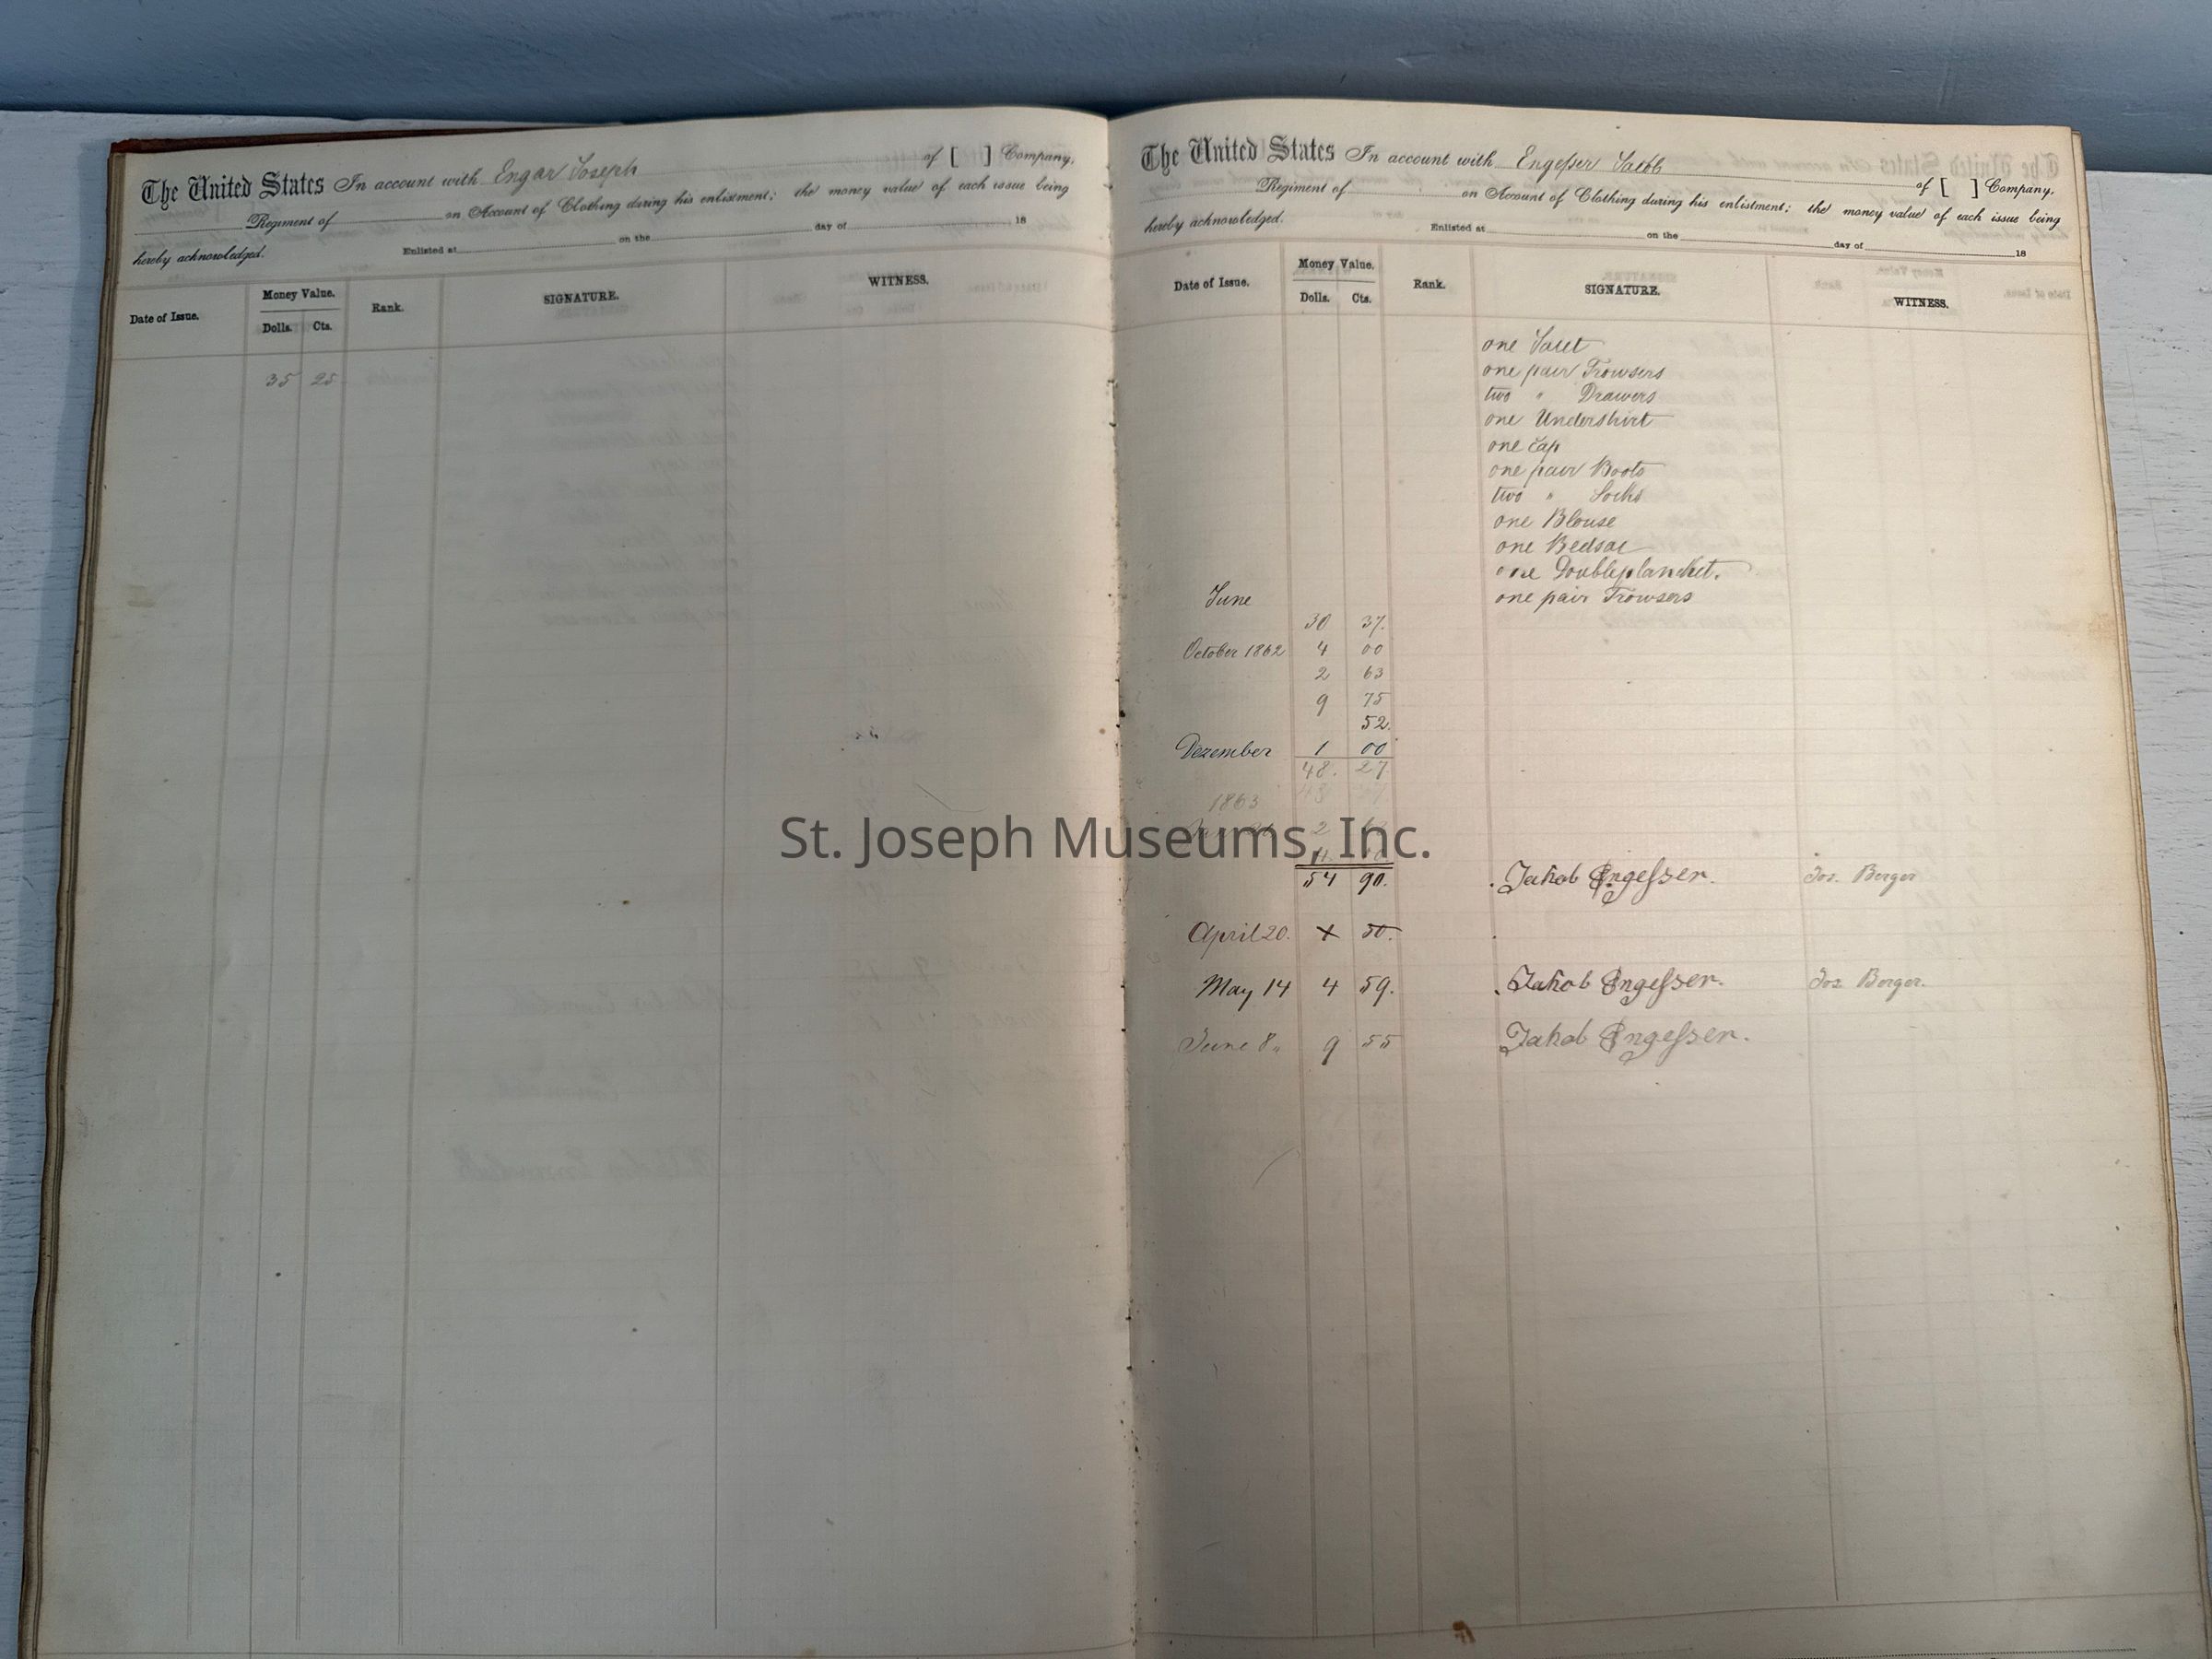 The United States In account with Engar Joseph of [ ] Company,
Regiment of on Account of Clothing during his enlistment; the money value of each issue being
hereby acknowledged. Enlisted at on the day of 18
Date of Issue. Money Value. Rank. SIGNATURE. WITNESS.
Dolls. Cts.
35 25
The United States In account with Engeſser Jacob of [ ] Company,
Regiment of on Account of Clothing during his enlistment; the money value of each issue being
hereby acknowledged. Enlisted at on the day of 18
Date of Issue. Money Value. Rank. SIGNATURE. WITNESS.
Dolls. Cts.
one
one pair Trowsers
two " Drawers
one Undershirt
one Cap
one pair Boots
two " Socks
one Blouse
one Bedsac
one Doubleplancket.
June one pair Trowsers
30 37.
October 1862 4 00
2 63
9 75
52.
Dezember 1 00
48. 27
1863
2
St. Joseph Museums, Inc.
54 90. Jakob Engeſser. Jos. Berger
April 20. 50.
May 14 4 59. Jakob Engeſser. Jos. Berger.
June 8. 9 55 Jakob Engeſser.